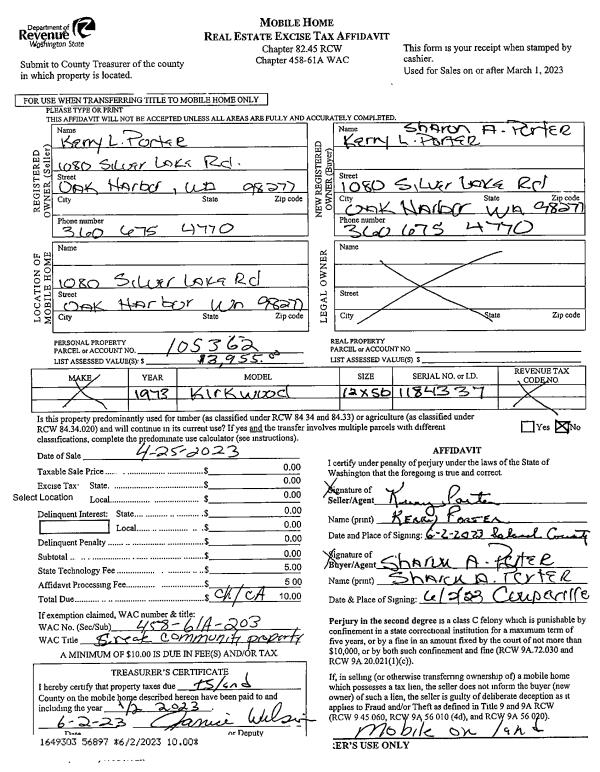 Department of
Revenue
Washington State
MOBILE HOME
REAL ESTATE EXCISE TAX AFFIDAVIT
Chapter 82.45 RCW
Chapter 458-61A WAC
This form is your receipt when stamped by
cashier.
Used for Sales on or after March 1, 2023
Submit to County Treasurer of the county
in which property is located.
FOR USE WHEN TRANSFERRING TITLE TO MOBILE HOME ONLY
PLEASE TYPE OR PRINT
THIS AFFIDAVIT WILL NOT BE ACCEPTED UNLESS ALL AREAS ARE FULLY AND ACCURATELY COMPLETED.
REGISTERED OWNER (Seller)
Name
Kerry L. Porter
1080 Silver Lake Rd.
Street
Oak Harbor, WA 98277
City State Zip code
Phone number
360 675 4770
NEW REGISTERED OWNER (Buyer)
Name Sharon A. Porter
Kerry L. Porter
1080 Silver Lake Rd
Street
Oak Harbor WA 98277
City State Zip code
Phone number
360 675 4770
LOCATION OF MOBILE HOME
Name
1080 Silver Lake Rd
Street
Oak Harbor WA 98277
City State Zip code
LEGAL OWNER
Name
Street
City State Zip code
PERSONAL PROPERTY
PARCEL or ACCOUNT NO. 105362
LIST ASSESSED VALUE(S): $ $3,955.00
REAL PROPERTY
PARCEL or ACCOUNT NO.
LIST ASSESSED VALUE(S): $
MAKE YEAR MODEL SIZE SERIAL NO. or I.D. REVENUE TAX CODE NO.
1973 Kirkwood 12x56 1184337
Is this property predominantly used for timber (as classified under RCW 84.34 and 84.33) or agriculture (as classified under
RCW 84.34.020) and will continue in its current use? If yes and the transfer involves multiple parcels with different
classifications, complete the predominate use calculator (see instructions).
Yes No
Date of Sale 4-25-2023
Taxable Sale Price $ 0.00
Excise Tax: State $ 0.00
Select Location Local $ 0.00
Delinquent Interest: State $ 0.00
Local $ 0.00
Delinquent Penalty $ 0.00
Subtotal $ 0.00
State Technology Fee $ 5.00
Affidavit Processing Fee $ 5 00
Total Due $ CK/CA 10.00
If exemption claimed, WAC number & title:
WAC No. (Sec/Sub) 458-61A-203
WAC Title Break community property
A MINIMUM OF $10.00 IS DUE IN FEE(S) AND/OR TAX
TREASURER'S CERTIFICATE
I hereby certify that property taxes due
County on the mobile home described hereon have been paid to and
including the year 1/2 2023
6-2-23 Janice Wilson
or Deputy
1649303 56897 *6/2/2023 10.00*
AFFIDAVIT
I certify under penalty of perjury under the laws of the State of
Washington that the foregoing is true and correct.
Signature of
Seller/Agent Kerry Porter
Name (print) Kerry Porter
Date and Place of Signing: 6-2-2023 Island County
Signature of
Buyer/Agent Sharon A. Porter
Name (print) Sharon A. Porter
Date & Place of Signing: 6/2/23 Coupeville
Perjury in the second degree is a class C felony which is punishable by
confinement in a state correctional institution for a maximum term of
five years, or by a fine in an amount fixed by the court of not more than
$10,000, or by both such confinement and fine (RCW 9A.72.030 and
RCW 9A 20.021(1)(c)).
If, in selling (or otherwise transferring ownership of) a mobile home
which possesses a tax lien, the seller does not inform the buyer (new
owner) of such a lien, the seller is guilty of deliberate deception as it
applies to Fraud and/or Theft as defined in Title 9 and 9A RCW
(RCW 9 45 060, RCW 9A 56 010 (4d), and RCW 9A 56 020).
Mobile on land
ER'S USE ONLY